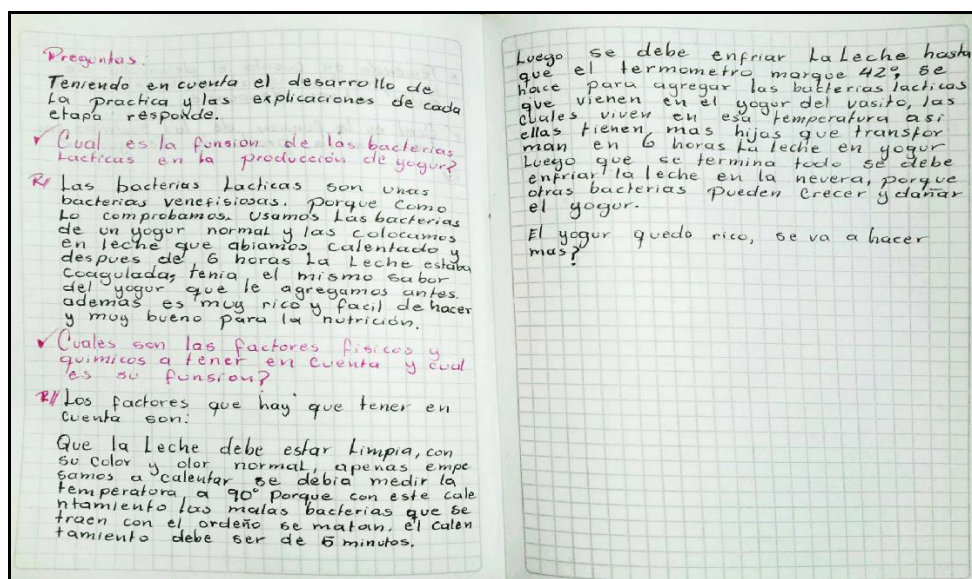 Preguntas:
Teniendo en cuenta el desarrollo de
La practica y las explicaciones de cada
etapa responde.
✓ Cual es la funsion de las bacterias
Lacticas en la producción de yogur?
R// Las bacterias Lacticas son unas
bacterias venefisiosas. porque como
Lo comprobamos. Usamos Las bacterias
de un yogur normal y las colocamos
en leche que abiamos calentado y
despues de 6 horas La Leche estaba
coagulada, tenia el mismo sabor
del yogur que le agregamos antes.
además es muy rico y facil de hacer
y muy bueno para la nutrición.
✓ Cuales son las factores fisicos y
quimicos a tener en cuenta y cual
es su funsion?
R// Los factores que hay que tener en
cuenta son:
Que la Leche debe estar Limpia, con
su color y olor normal, apenas empe
samos a calentar se debia medir la
temperatura a 90° porque con este cale
ntamiento las malas bacterias que se
traen con el ordeño se matan. el calen
tamiento debe ser de 5 minutos.
Luego se debe enfriar La Leche hasta
que el termometro marque 42°, se
hace para agregar las bacterias lacticas
que vienen en el yogur del vasito, las
cuales viven en esa temperatura asi
ellas tienen mas hijas que transfor
man en 6 horas La leche en yogur
Luego que se termina todo se debe
enfriar la leche en la nevera, porque
otras bacterias pueden crecer y dañar
el yogur.
El yogur quedo rico, se va a hacer
mas?